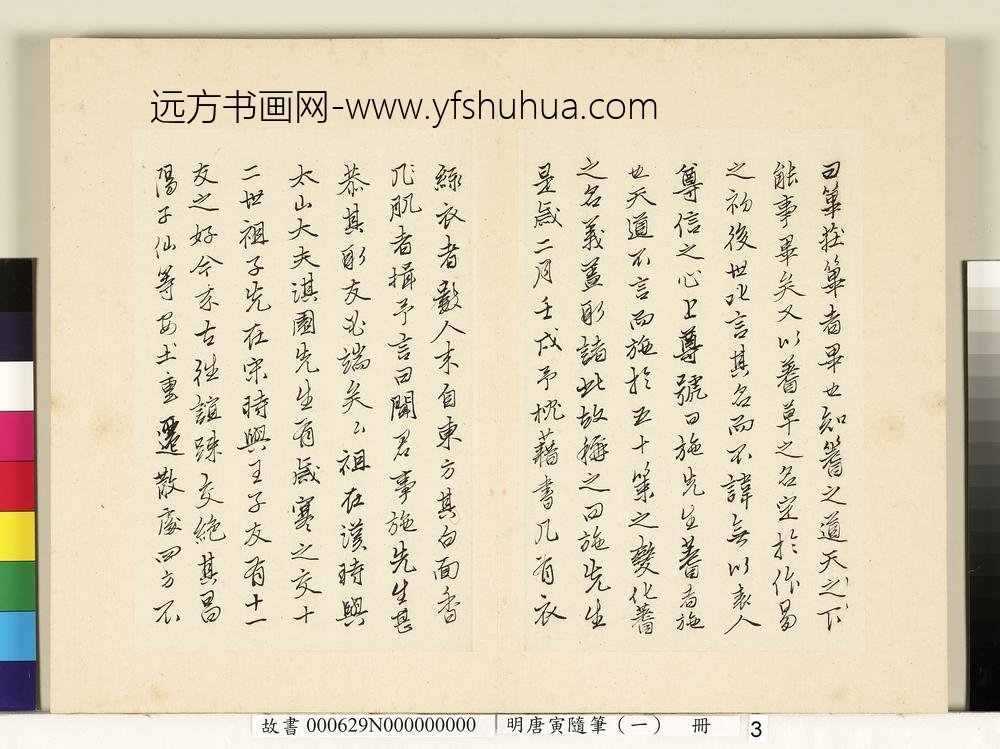 远方书画网-www.yfshuhua.com
曰箄莊箄者畢也知筮之道天之下
能事畢矣又以蓍草之名定於作易
之初後世凡言其名而不諱無以表人
尊信之心上尊號曰施先生蓍者施
也天道不言而施於五十策之變化蓍
之名義蓋取諸此故稱之曰施先生
是歲二月壬戌予枕藉書几有衣
綠衣者數人來自東方其白面香
肌者揖予言曰聞君事施先生甚
恭其取友必端矣祖在漢時與
太山大夫淇園先生有歲寒之交十
二世祖子先在宋時與王子友有十一
友之好今來古往誼踈交絕其昌
陽子仙等安土重遷散處四方不
故書 000629N000000000 明唐寅隨筆（一） 冊 3